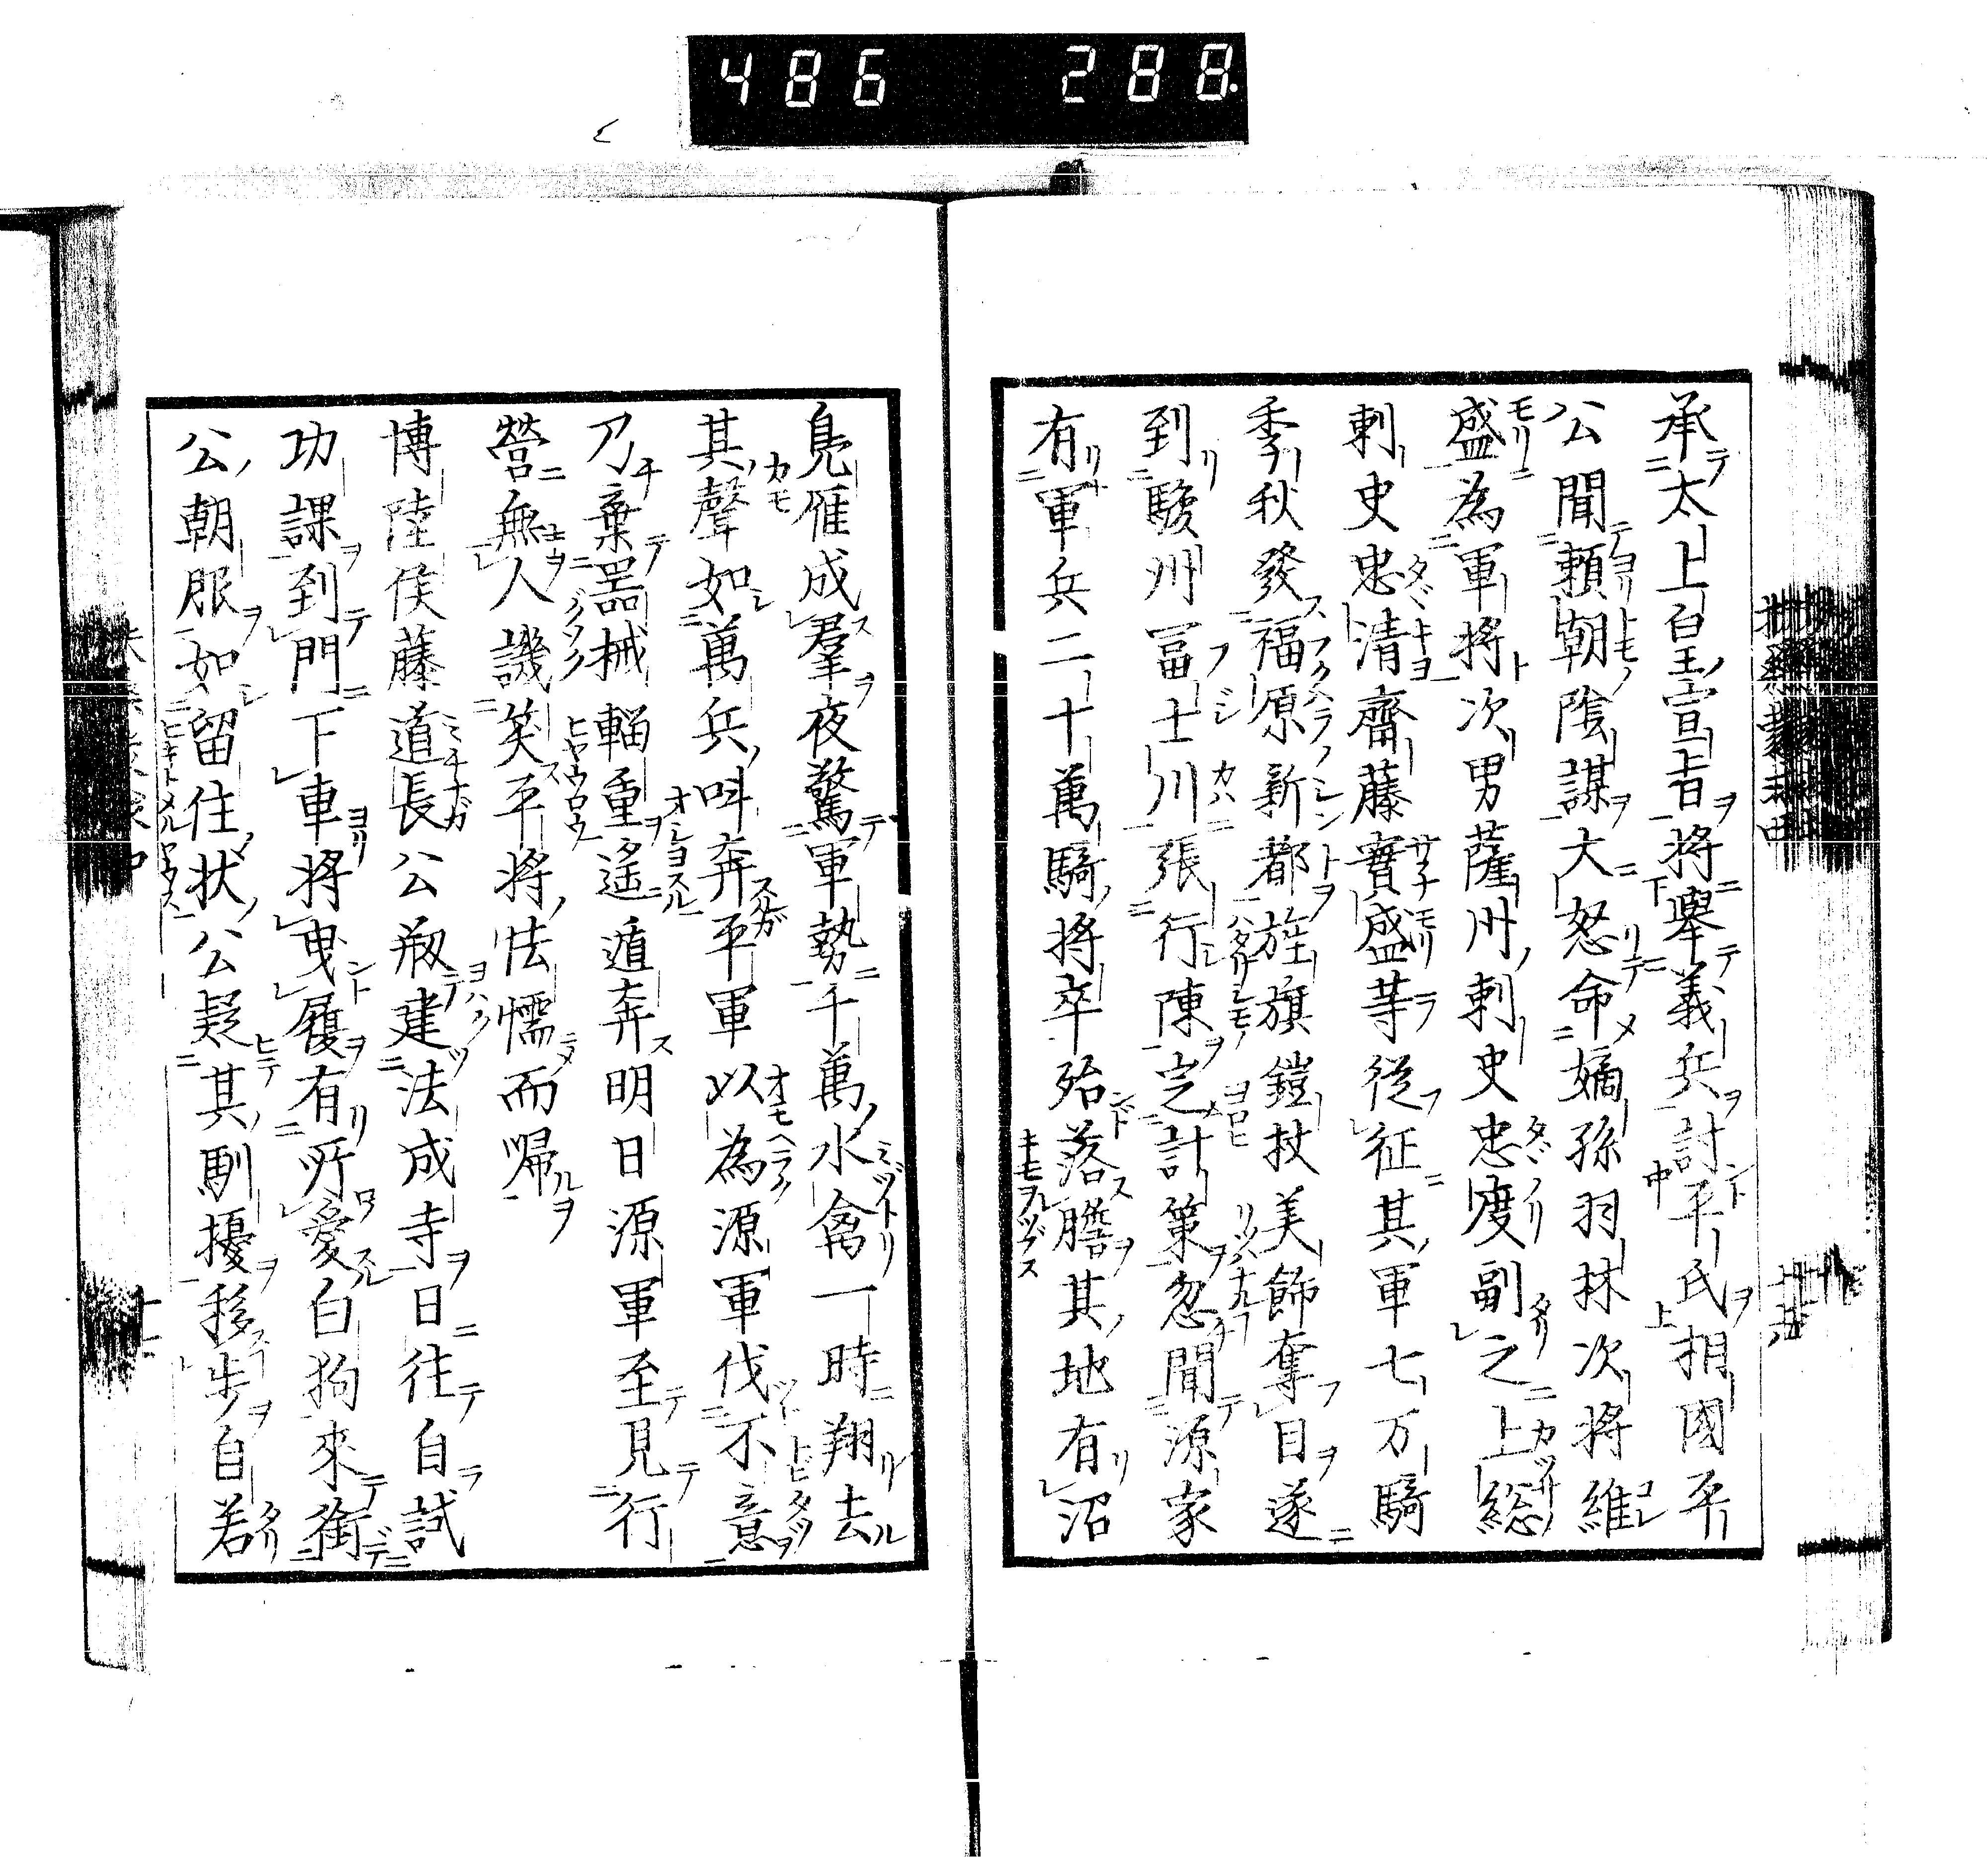 486 288
承太上皇宣旨將舉義兵討平氏相國平
公聞頼朝陰謀大怒命嫡孫羽林次將維
盛為軍將次男薩州刺史忠度副之上総
刺史忠清齋藤實盛等從征其軍七万騎
季秋發福原新都旌旗鎧杖美飾奪目遂
到駿州冨士川張行陳定計策忽聞源家
有軍兵二十萬騎將卒殆落膽其地有沼
鳬雁成羣夜驚軍勢千萬水禽一時翔去
其聲如萬兵呌奔平軍以為源軍伐不意
乃棄噐械輜重遙遁奔明日源軍至見行
營無人譏笑平將怯懦而歸
博陸侯藤道長公刱建法成寺日往自試
功課到門下車將曳履有所愛白狗來銜
公朝服如留住状公疑其馴擾移步自若